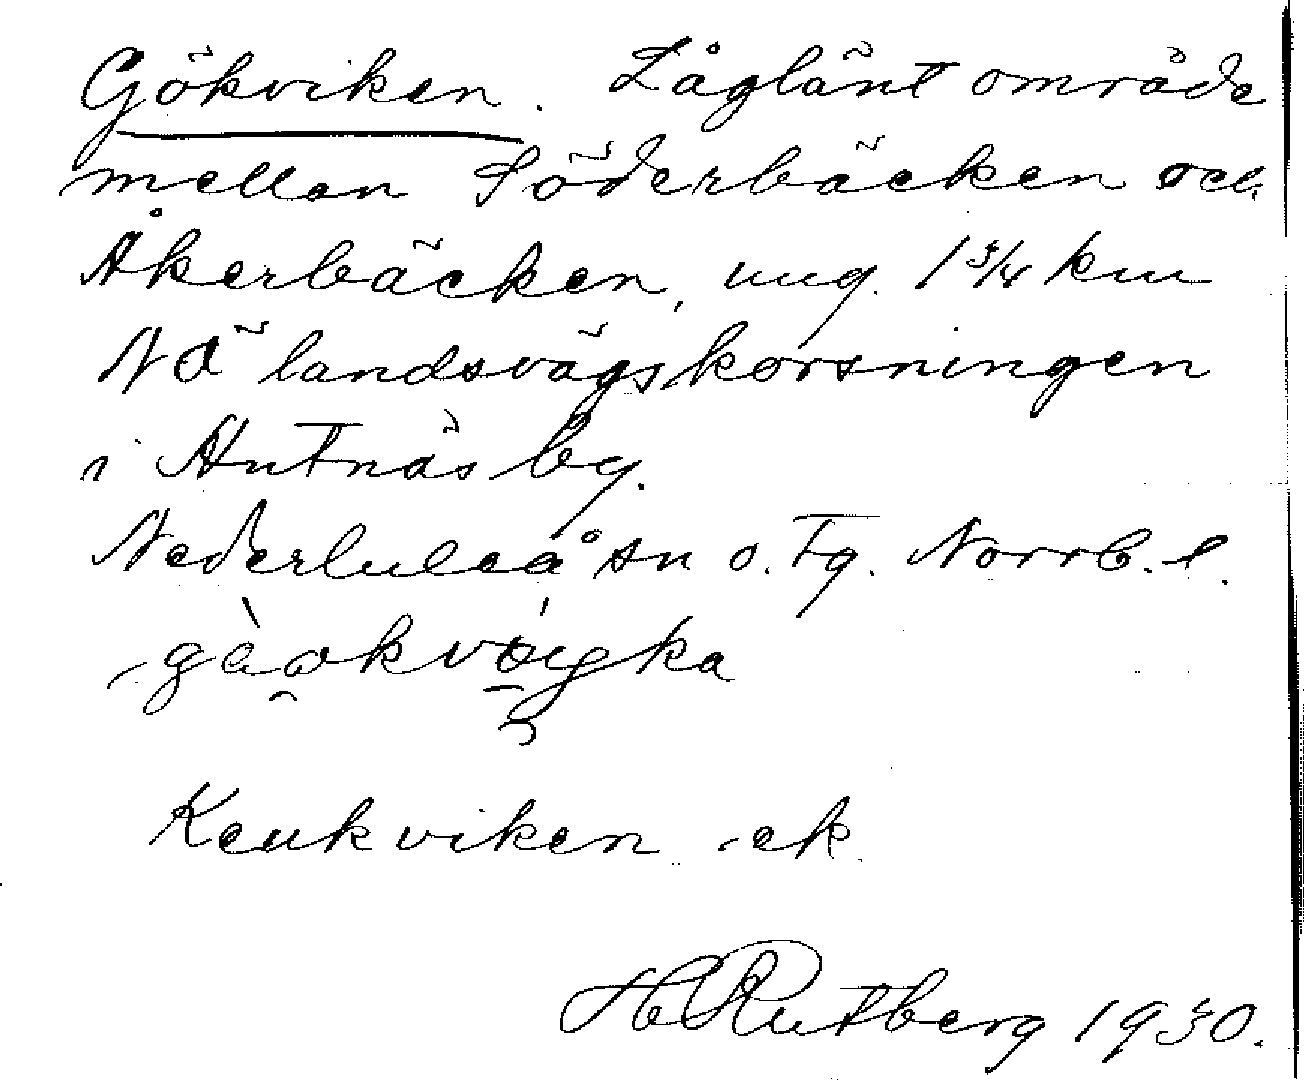 Gökviken. Låglänt område
mellan Söderbäcken och
Åkerbäcken, ung. 1 3/4 km
NÖ landsvägskorsningen
i Antnäs by.
Nederluleå sn o. tg. Norrb. l.
Keukviken -ek.
H Rutberg 1930.